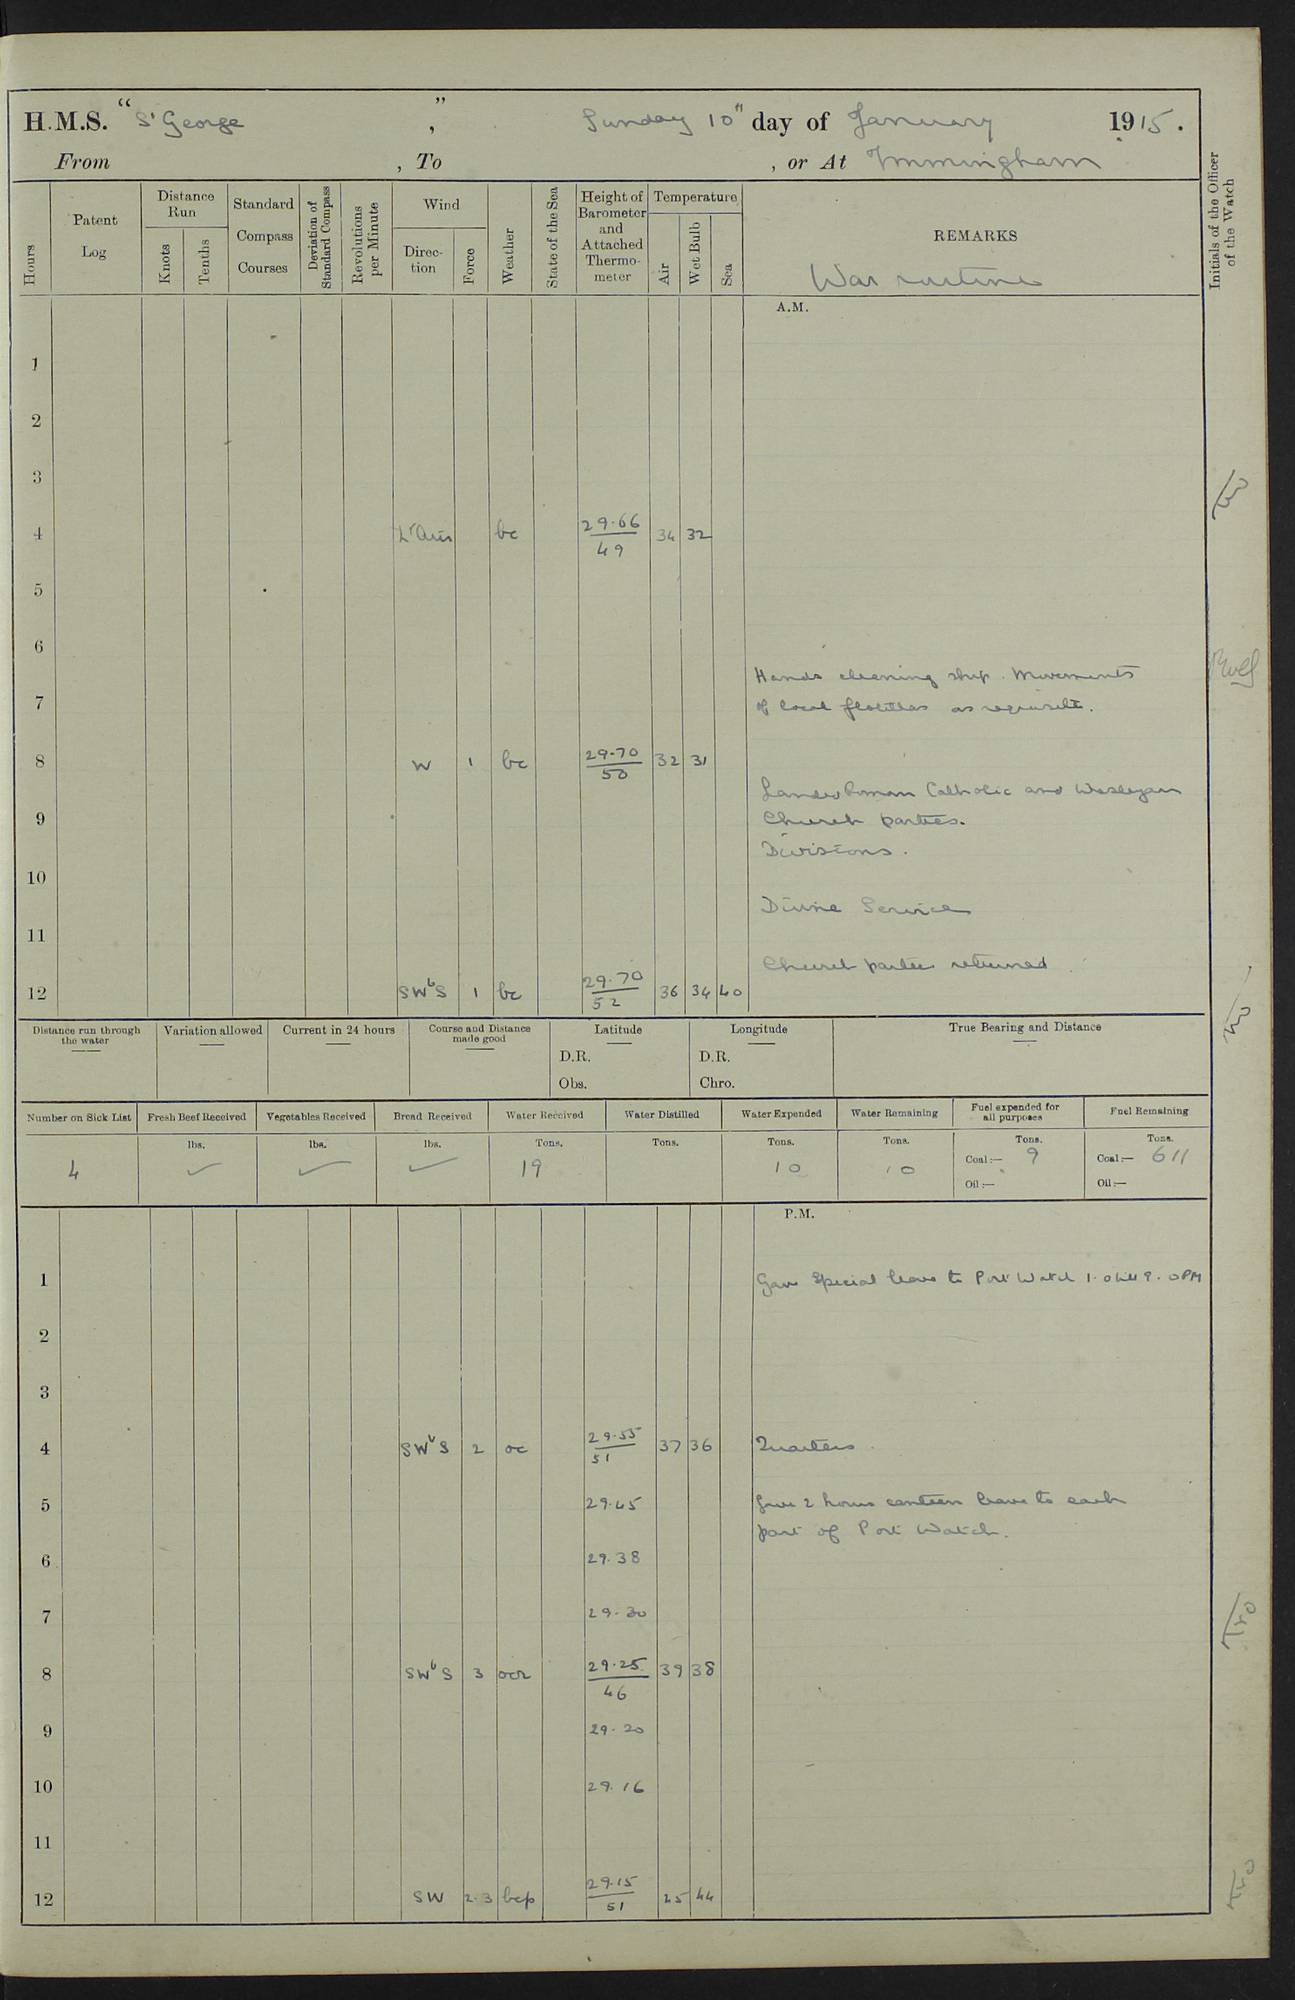 H.M.S. "St George", Sunday 10" day of January 1915.
From , To , or At Immingham
Hours
Patent Log
Distance Run
Knots
Tenths
Standard Compass Courses
Deviation of Standard Compass
Revolutions per Minute
Wind
Direction
Force
Weather
State of the Sea
Height of Barometer and Attached Thermometer
Temperature
Air
Wet Bulb
Sea
REMARKS
War routine
Initials of the Officer of the Watch
A.M.
1
2
3
4 Lt Airs bc 29.66 34 32
49
5
6
Hands cleaning ship. Movements
7 of local flotillas as requisite.
8 W 1 bc 29.70 32 31
50
Landed Roman Catholic and Wesleyan
9 Church parties.
Divisions.
10
Divine Service
11
Church parties returned
12 SWbS 1 bc 29.70 36 34 40
52
Distance run through the water
Variation allowed
Current in 24 hours
Course and Distance made good
Latitude
D.R.
Obs.
Longitude
D.R.
Chro.
True Bearing and Distance
Number on Sick List
Fresh Beef Received
Vegetables Received
Bread Received
Water Received
Water Distilled
Water Expended
Water Remaining
Fuel expended for all purposes
Fuel Remaining
lbs. lbs. lbs. Tons. Tons. Tons. Tons. Tons. Tons.
4 ✓ ✓ ✓ 19 10 10 Coal:— 9 Coal:— 611
Oil:— Oil:—
P.M.
1 Gave Special leave to Port Watch 1.0 till 9.0 PM
2
3
4 SWbS 2 oc 29.55 37 36 Quarters
51
5 29.45 Gave 2 hours canteen leave to each
part of Port Watch.
6 29.38
7 29.30
8 SWbS 3 ocr 29.25 39 38
46
9 29.20
10 29.16
11
12 SW 2.3 bcp 29.15 45 44
51